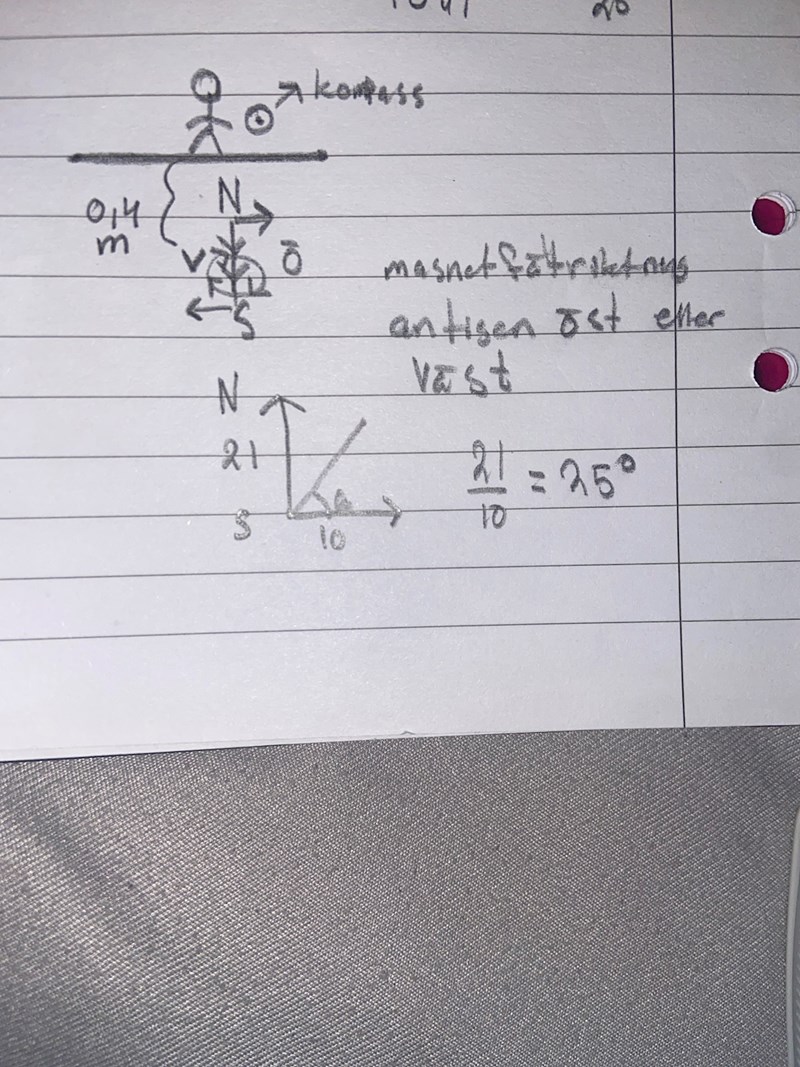 20
kompass
0,4
m
N
V Ö
S
magnetfältriktning
antigen öst eller
väst
N
21
S
10
21
10
= 25°